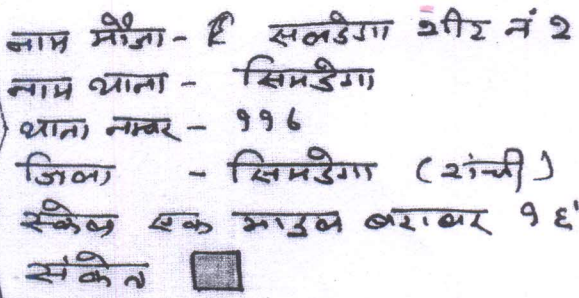 नाम मौजा - सलडेगा शीट नं २
नाम थाना - सिमडेगा
थाना नम्बर - ११६
जिला - सिमडेगा (रांची)
स्केल एक माइल बराबर १६"
संकेत